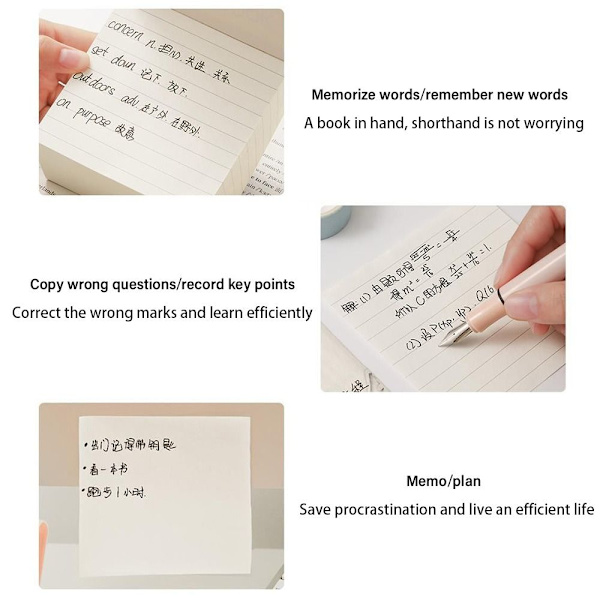 concern n. 担心. 关连. 关系.
set down 记下. 放下.
outdoors adv 在户外. 在野外.
on purpose 故意
Memorize words/remember new words
A book in hand, shorthand is not worrying
Copy wrong questions/record key points
Correct the wrong marks and learn efficiently
(2) 设P(xp, yp). Q(6
• 出门记得带钥匙
• 看一本书
• 跑步1小时.
Memo/plan
Save procrastination and live an efficient life